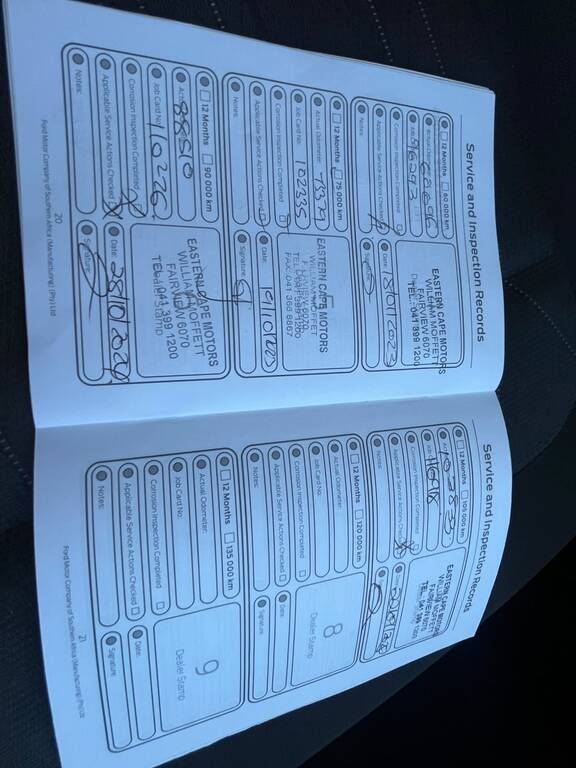 Service and Inspection Records
12 Months 60 000 km
Actual Odometer:
Job Card No: 96293
Corrosion Inspection Completed
Applicable Service Actions Checked
Notes:
EASTERN CAPE MOTORS
WILLIAM MOFFETT
FAIRVIEW 6070
TEL: 041 399 1200
Date:
Signature:
12 Months 75 000 km
Actual Odometer:
Job Card No: 102335
Corrosion Inspection Completed
Applicable Service Actions Checked
Notes:
EASTERN CAPE MOTORS
WILLIAM MOFFET
FAIRVIEW 6070
TEL: 041 399 1200
FAX: 041 368 8867
Date:
Signature:
12 Months 90 000 km
Actual Odometer: 88510
Job Card No: 110226
Corrosion Inspection Completed
Applicable Service Actions Checked
Notes:
EASTERN CAPE MOTORS
WILLIAM MOFFETT
FAIRVIEW 6070
TEL: 041 399 1200
Date: 28/10/2024
Signature:
20
Ford Motor Company of Southern Africa (Manufacturing) (Pty) Ltd
Service and Inspection Records
12 Months 105 000 km
Corrosion Inspection Completed
Applicable Service Actions Checked
Notes:
EASTERN CAPE MOTORS
WILLIAM MOFFETT
FAIRVIEW 6070
TEL: 041 399 1200
12 Months 120 000 km
Actual Odometer:
Job Card No:
Corrosion Inspection Completed
Applicable Service Actions Checked
Notes:
8
Dealer Stamp
Date:
Signature:
12 Months 135 000 km
Actual Odometer:
Job Card No:
Corrosion Inspection Completed
Applicable Service Actions Checked
Notes:
9
Dealer Stamp
Date:
Signature:
21
Ford Motor Company of Southern Africa (Manufacturing) (Pty) Ltd